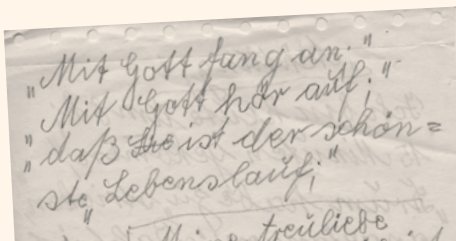 „Mit Gott fang an."
„Mit Gott hör auf;"
„daß ist der schön=
ste Lebenslauf;"
"
Meine treuliebe